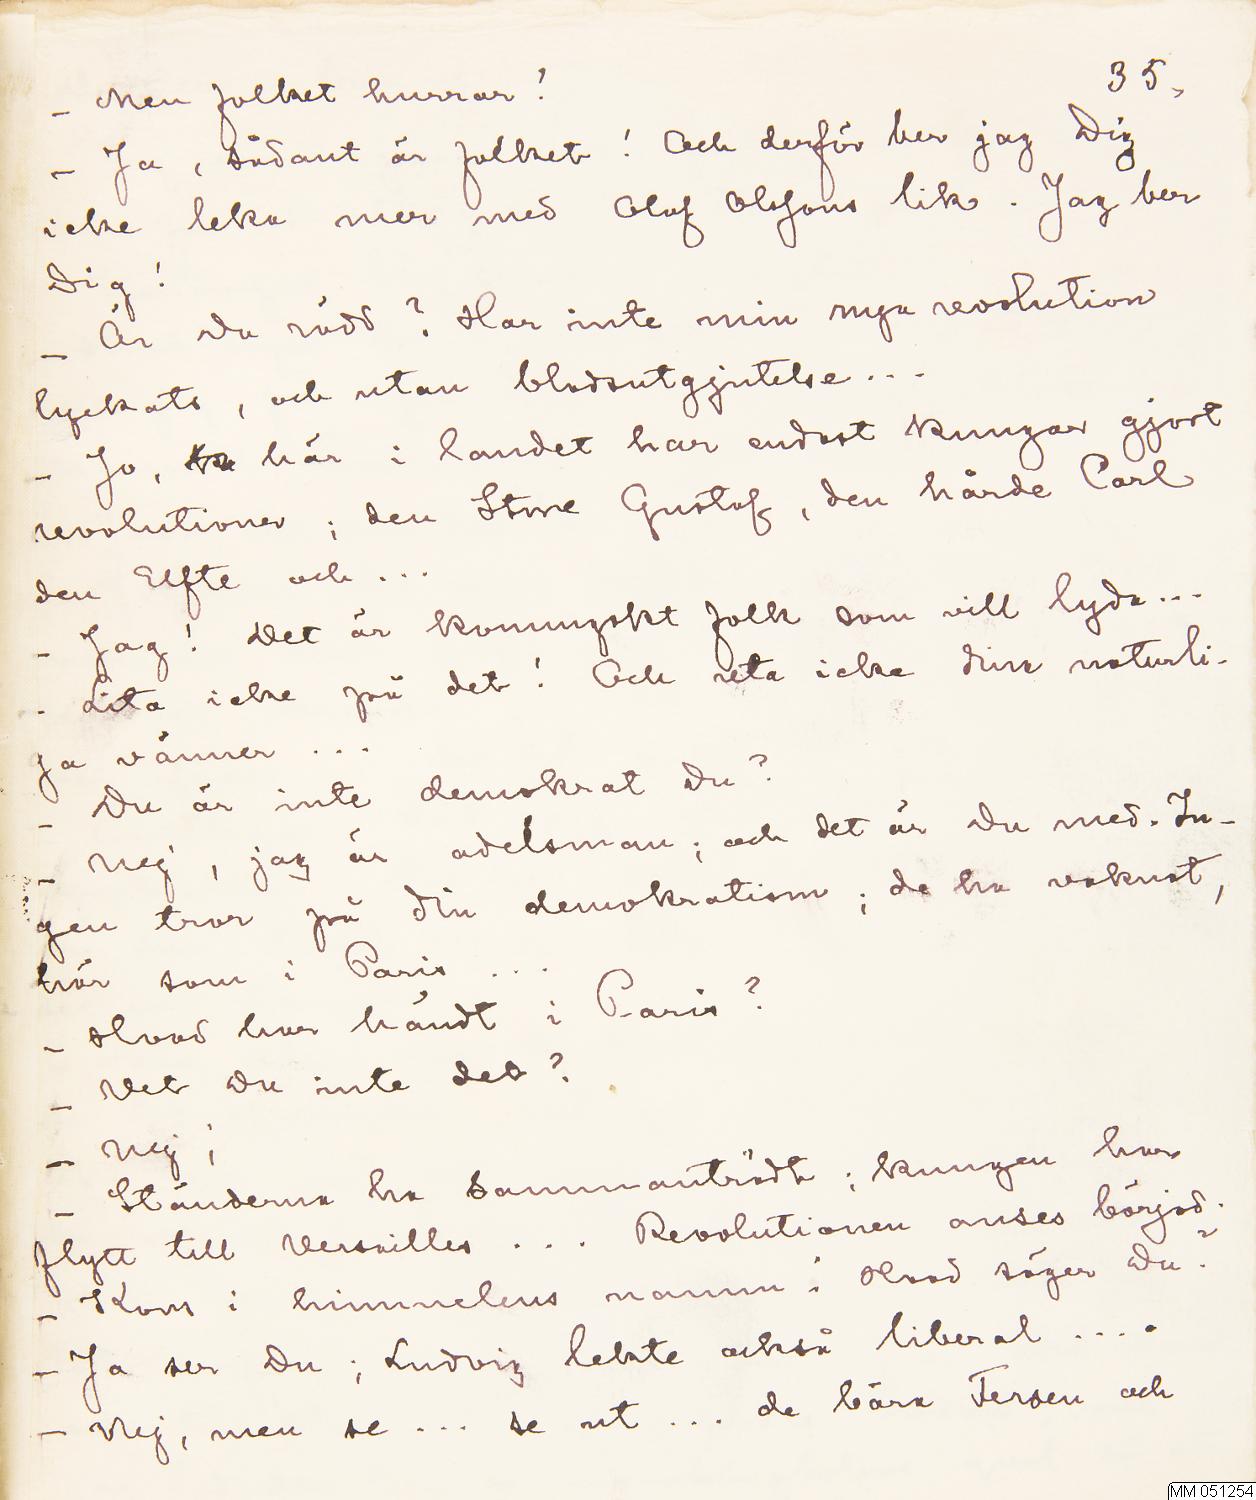 35,
– Men folket hurrar!
– Ja, sådant är folket! Och derför ber jag Dig
icke leka mer med Olof Olofsons lik. Jag ber
Dig!
– Är Du rädd? Har inte min nya revolution
lyckats, och utan blodsutgjutelse...
– Jo, här i landet har endast kungar gjort
revolutioner; den Store Gustaf, den hårde Carl
den Elfte och...
– Jag! Det är konungskt folk som vill lyda...
– Lita icke på det! Och reta icke dina naturli-
ga vänner...
– Du är inte demokrat Du?
– Nej, jag är adelsman; och det är Du med. In-
gen tror på din demokratism; de ha vaknat,
här som i Paris...
– Hvad har händt i Paris?
– Vet Du inte det?
– Nej!
– Ständerna ha sammanträdt; kungen har
flytt till Versailles... Revolutionen anses börjad.
– Kors i himmelens namn! Hvad säger Du?
– Ja ser Du; Ludvig lekte också liberal....
– Nej, men se... se ut... de bära Fersen och
MM 051254